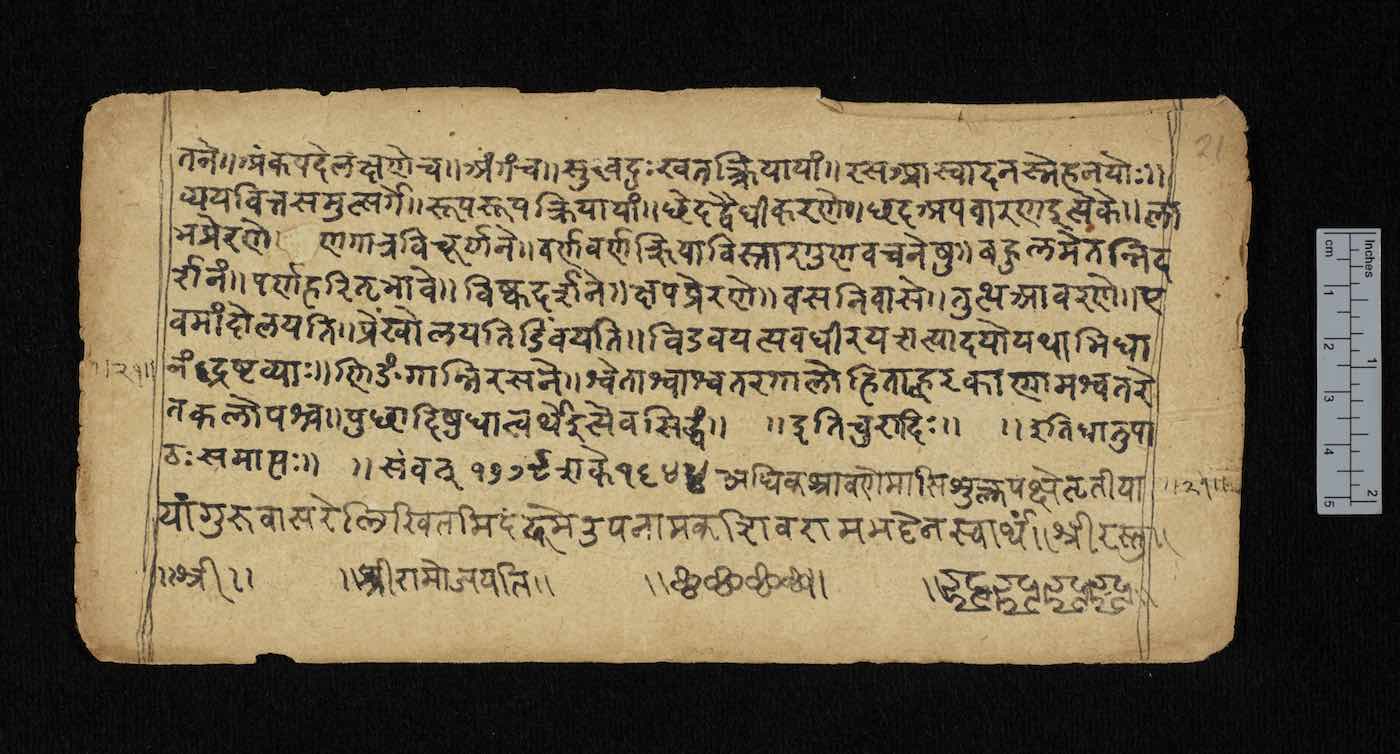 तने॥अंकपदेलक्षणेच॥अंगंच॥सुखदुःखतत्क्रियायां॥रसआस्वादनस्नेहनयोः॥
व्ययवित्तसमुत्सर्गे॥रूपरूपक्रियायां॥छेदद्वैधीकरणे॥छदअपवारणइत्येके॥ला
भप्रेरणे॥ णगात्रविचूर्णने॥वर्णवर्णक्रियाविस्तारगुणवचनेषु॥बहुलमेतन्निद
र्शनं॥पर्णहरितभावे॥विष्कदर्शने॥क्षपप्रेरणे॥वसनिवासे॥तुत्थआवरणे॥ए
वमांदोलयति॥प्रेंखोलयतिडिंवयति॥विडवयत्यवधीरयत्यादयोयथाभिधा
नंद्रष्टव्याः॥णिङंगान्निरसने॥श्वेताश्वाश्वतरगालोहिताह्वरकाणामश्वतरे
तकलोपश्च॥पुछादिषुधात्वर्थेइत्येवसिद्धं॥ ॥इतिचुरादिः॥ ॥इतिधातुपा
ठःसमाप्तः॥ ॥संवत् १७७९शके१६४४अधिकश्रावणेमासिशुक्लपक्षेतृतीया
यांगुरूवासरेलिखितमिदं उपनामककाशिवरामभट्टेनस्वार्थं॥श्रीरस्तु॥
॥श्री॥ ॥श्रीरामोजयति॥ ॥छछछछ॥
॥२१॥
॥२१॥
21
inches
cm
1
2
3
4
5
1
2